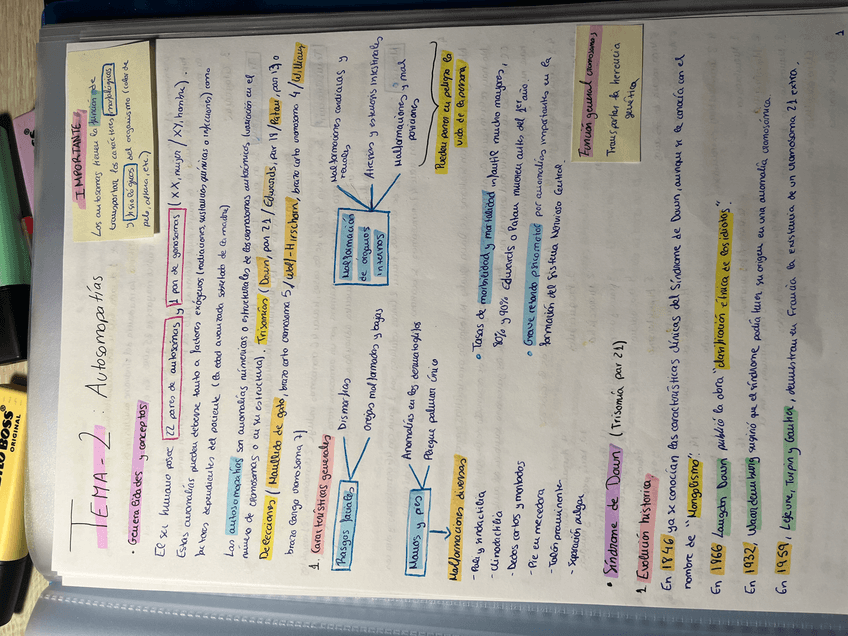 TEMA-2: Autosomopatías
IMPORTANTE
Los autosomas tienen la función de
transportar los caracteres morfológicos
y fisiológicos del organismo (color de
pelo, altura, etc.)
• Generalidades y conceptos
El ser humano posee 22 pares de autosomas y 1 par de gonosomas (XX, mujer / XY, hombre).
Estas anomalías pueden deberse tanto a factores exógenos (radiaciones, sustancias químicas o infecciones) como
factores dependientes del paciente (la edad avanzada sobretodo de la madre)
Las autosomopatías son anomalías numéricas o estructurales de los cromosomas autosómicos, (variación en el
número de cromosomas o en su estructura). Trisomías (Down, par 21 / Edwards, par 18 / Patau, par 13) o
Delecciones (Maullido de gato, brazo corto cromosoma 5 / Wolf-Hirschorn, brazo corto cromosoma 4 / Williams
brazo largo cromosoma 7)
1. Características generales
Rasgos faciales
Dismorfias
Orejas malformadas y bajas
Manos y pies
Anomalías en los dermatoglifos
Pliegue palmar único
Malformación de órganos internos
Malformaciones cardíacas y
renales
Atresias y estenosis intestinales
Malformaciones y mal
posiciones
Pueden poner en peligro la
vida de la persona
Malformaciones diversas
- Poli y sindactilia
- Clinodactilia
- Dedos cortos y montados
- Pie en mecedora
- Talón prominente
- Separación pulgar
• Tasas de morbilidad y mortalidad infantil mucho mayores,
80% y 90% Edwards o Patau mueren antes del 1er año
• Grave retardo psicomotor por anomalías importantes en la
formación del Sistema Nervioso Central.
Función general cromosomas
Transportar la herencia
genética
• Síndrome de Down (Trisomía par 21)
1 Evolución histórica
En 1846 ya se conocían las características clínicas del Síndrome de Down, aunque se le conocía con el
nombre de "Mongolismo"
En 1966 Langdon Down publicó la obra "clasificación étnica de los idiotas".
En 1932, Waardemburg sugirió que el síndrome podía tener su origen en una anomalía cromosómica.
En 1959, Lejeune, Turpin y Gautier, demuestran en Francia la existencia de un cromosoma 21 extra.
1
BOSS
ORIGINAL